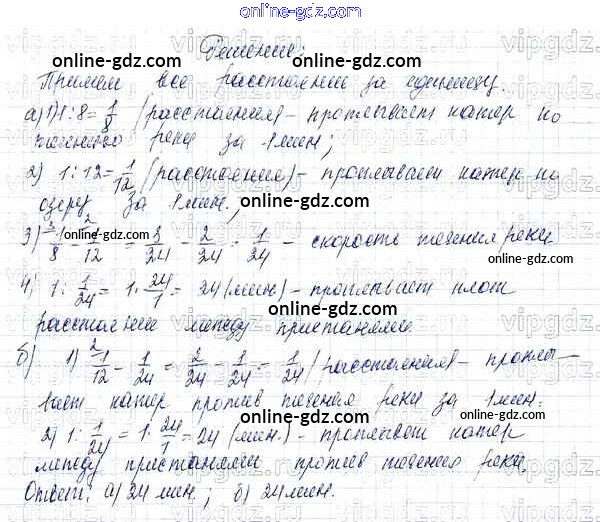 online-gdz.com
Решение:
online-gdz.com
Примем все расстояние за единицу
а) 1) 1 : 8 = 1/8 (расстояния) – проплывает катер по
online-gdz.com
течению реки за 1 мин;
online-gdz.com
2) 1 : 12 = 1/12 (расстояния) – проплывает катер по
озеру за 1 мин.;
online-gdz.com
3) 1/8 - 1/12 = 3/24 - 2/24 = 1/24 – скорость течения реки
online-gdz.com
online-gdz.com
4) 1 : 1/24 = 1 · 24/1 = 24 (мин) – проплывает плот
online-gdz.com
расстояние между пристанями
online-gdz.com
б) 1) 1/12 - 1/24 = 2/24 - 1/24 = 1/24 (расстояния) – проплы–
online-gdz.com
вает катер против течения реки за 1 мин.
online-gdz.com
2) 1 : 1/24 = 1 · 24/1 = 24 (мин.) – проплывет катер
online-gdz.com
между пристанями против течения реки.
online-gdz.com
Ответ: а) 24 мин.; б) 24 мин.
online-gdz.com